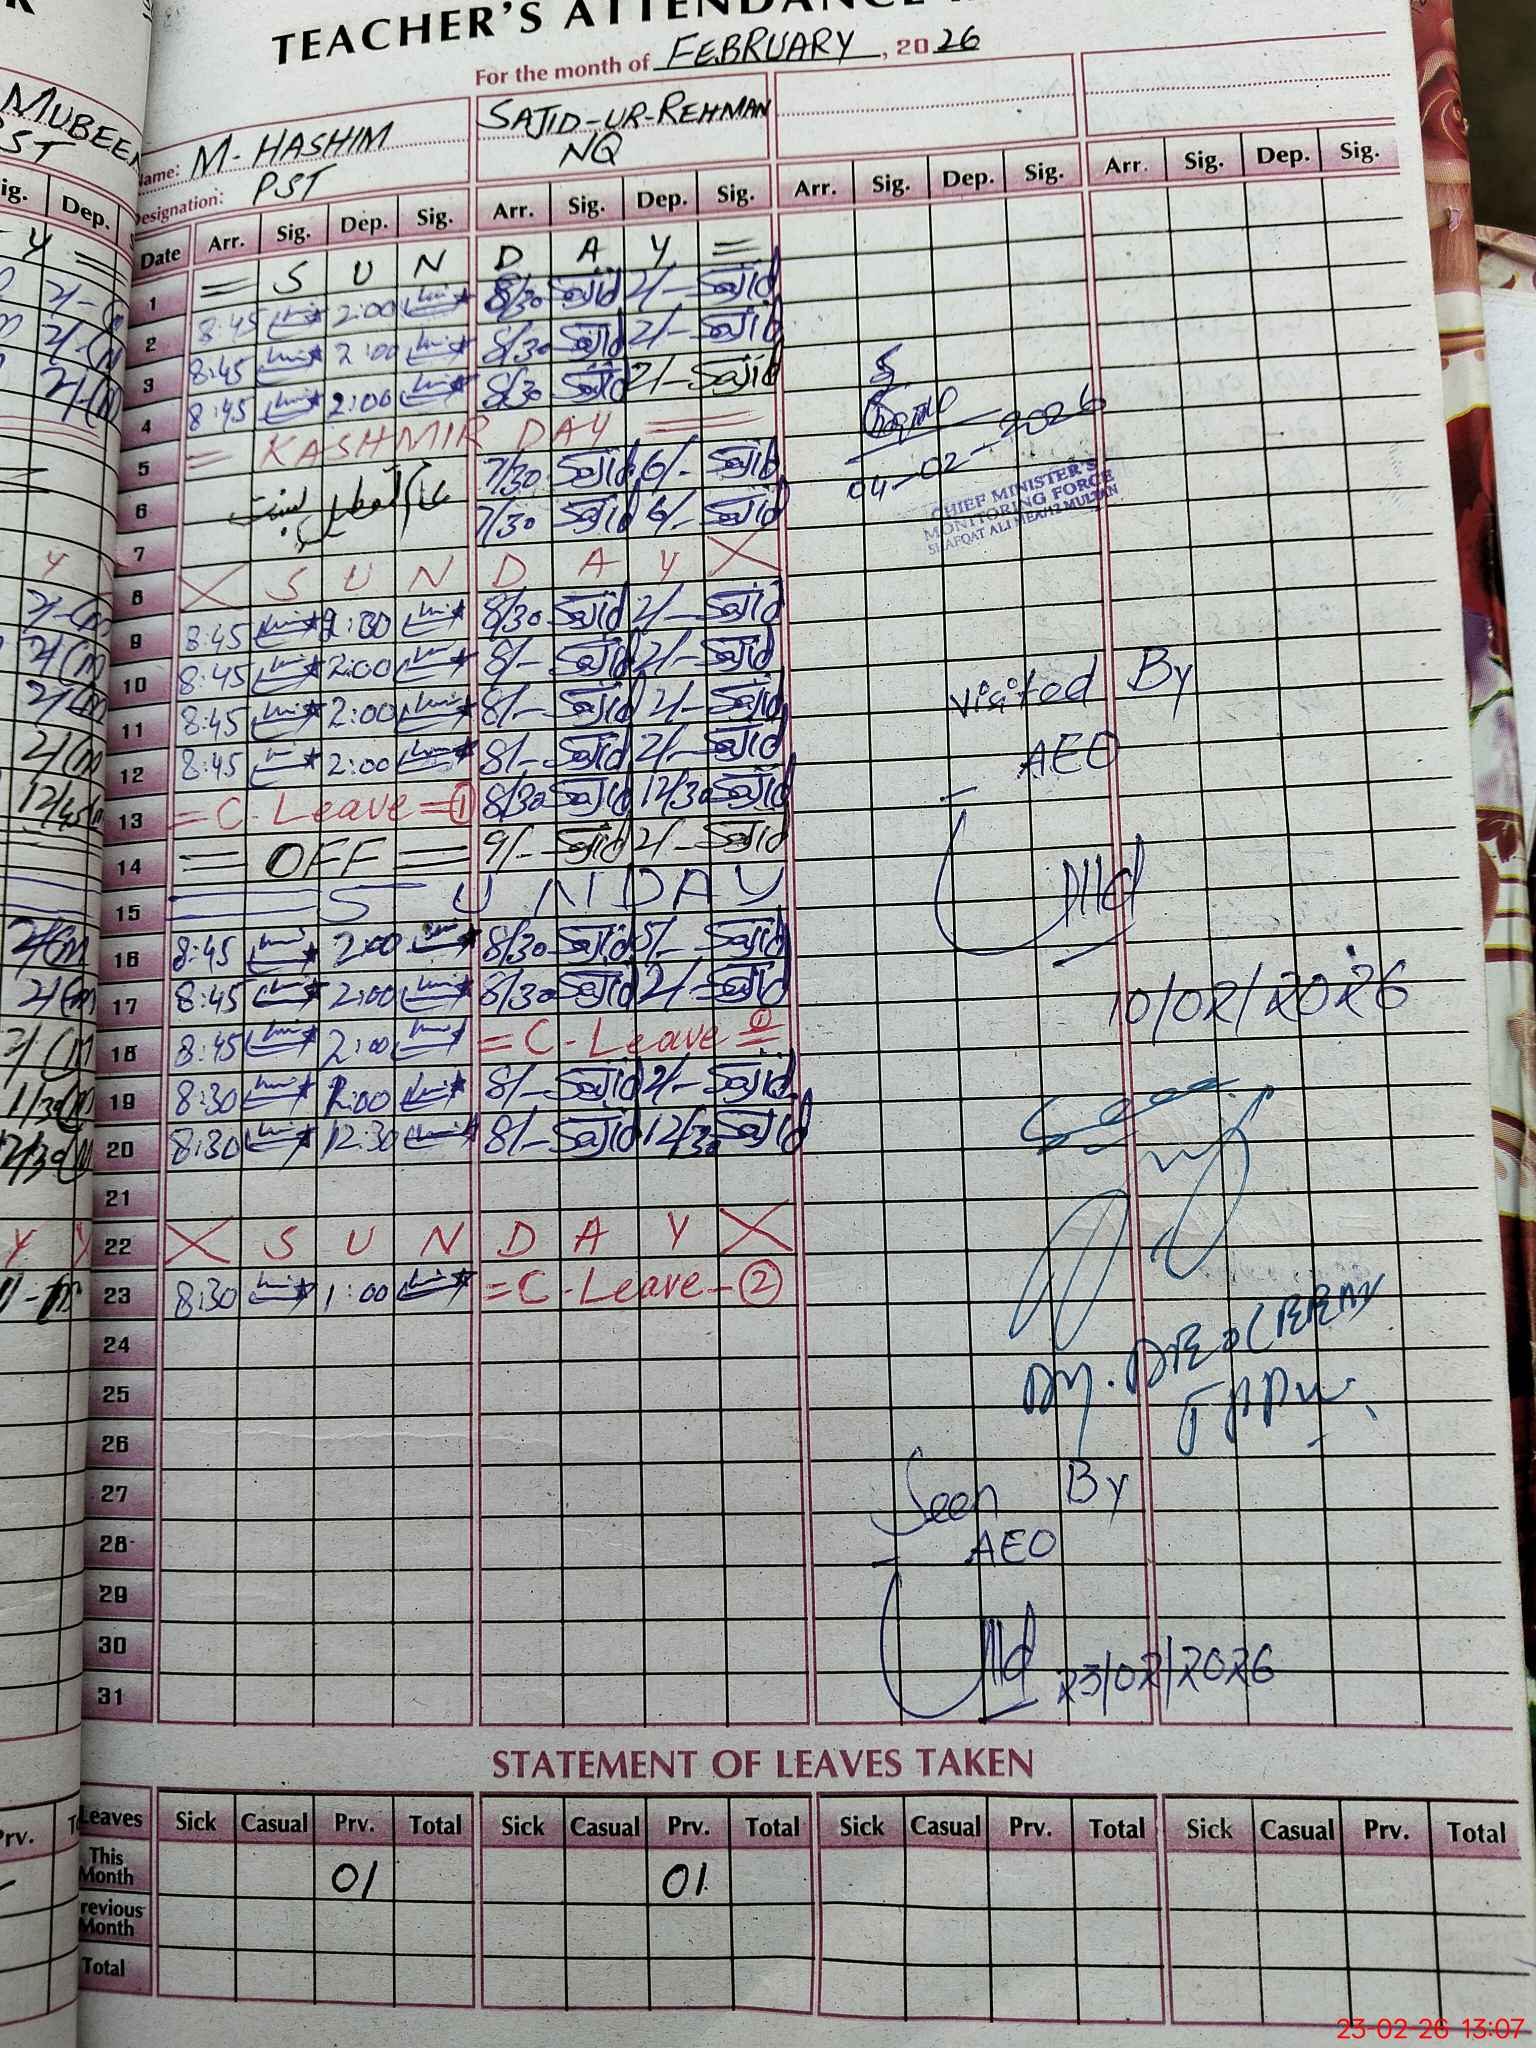 TEACHER'S ATTENDANCE
For the month of FEBRUARY, 2026
MUBEEN
Name: M-HASHIM SAJID-UR-REHMAN
Designation: PST NQ
Date Arr. Sig. Dep. Sig. Arr. Sig. Dep. Sig. Arr. Sig. Dep. Sig. Arr. Sig. Dep. Sig.
1 = S U N D A Y =
2 8:45 2:00 8/30 Sajid 2/- Sajid
3 8:45 2:00 8/30 Sajid 2/- Sajid
4 8:45 2:00 8/30 Sajid 2/- Sajid
5 = KASHMIR DAY =
6 7/30 Sajid 6/- Sajid
7 7/30 Sajid 6/- Sajid
04-02-2026
CHIEF MINISTER'S
MONITORING FORCE
SHAFQAT ALI MEA/12 MULTAN
8 X S U N D A Y X
9 8:45 8/30 Sajid 2/- Sajid
10 8:45 2:00 8/- Sajid 2/- Sajid
11 8:45 2:00 8/- Sajid 2/- Sajid
12 8:45 2:00 8/- Sajid 2/- Sajid
13 = C-Leave = 1 8/30 Sajid 12/30 Sajid
14 = OFF = 9/- Sajid 2/- Sajid
15 S U N D A Y
Visited By
AEO
10/02/2026
16 8:45 2:00 8/30 Sajid 5/- Sajid
17 8:45 2:00 8/30 Sajid 2/- Sajid
18 8:45 2:00 = C-Leave = 1
19 8:30 8/- Sajid 2/- Sajid
20 8:30 12:30 8/- Sajid 12/30 Sajid
21
22 X S U N D A Y X
23 8:30 1:00 = C-Leave - 2
24
25
26
27
28
29
30
31
Seen By
AEO
23/02/2026
STATEMENT OF LEAVES TAKEN
Leaves Sick Casual Prv. Total Sick Casual Prv. Total Sick Casual Prv. Total Sick Casual Prv. Total
This Month 01 01
Previous Month
Total
23-02-26 13:07